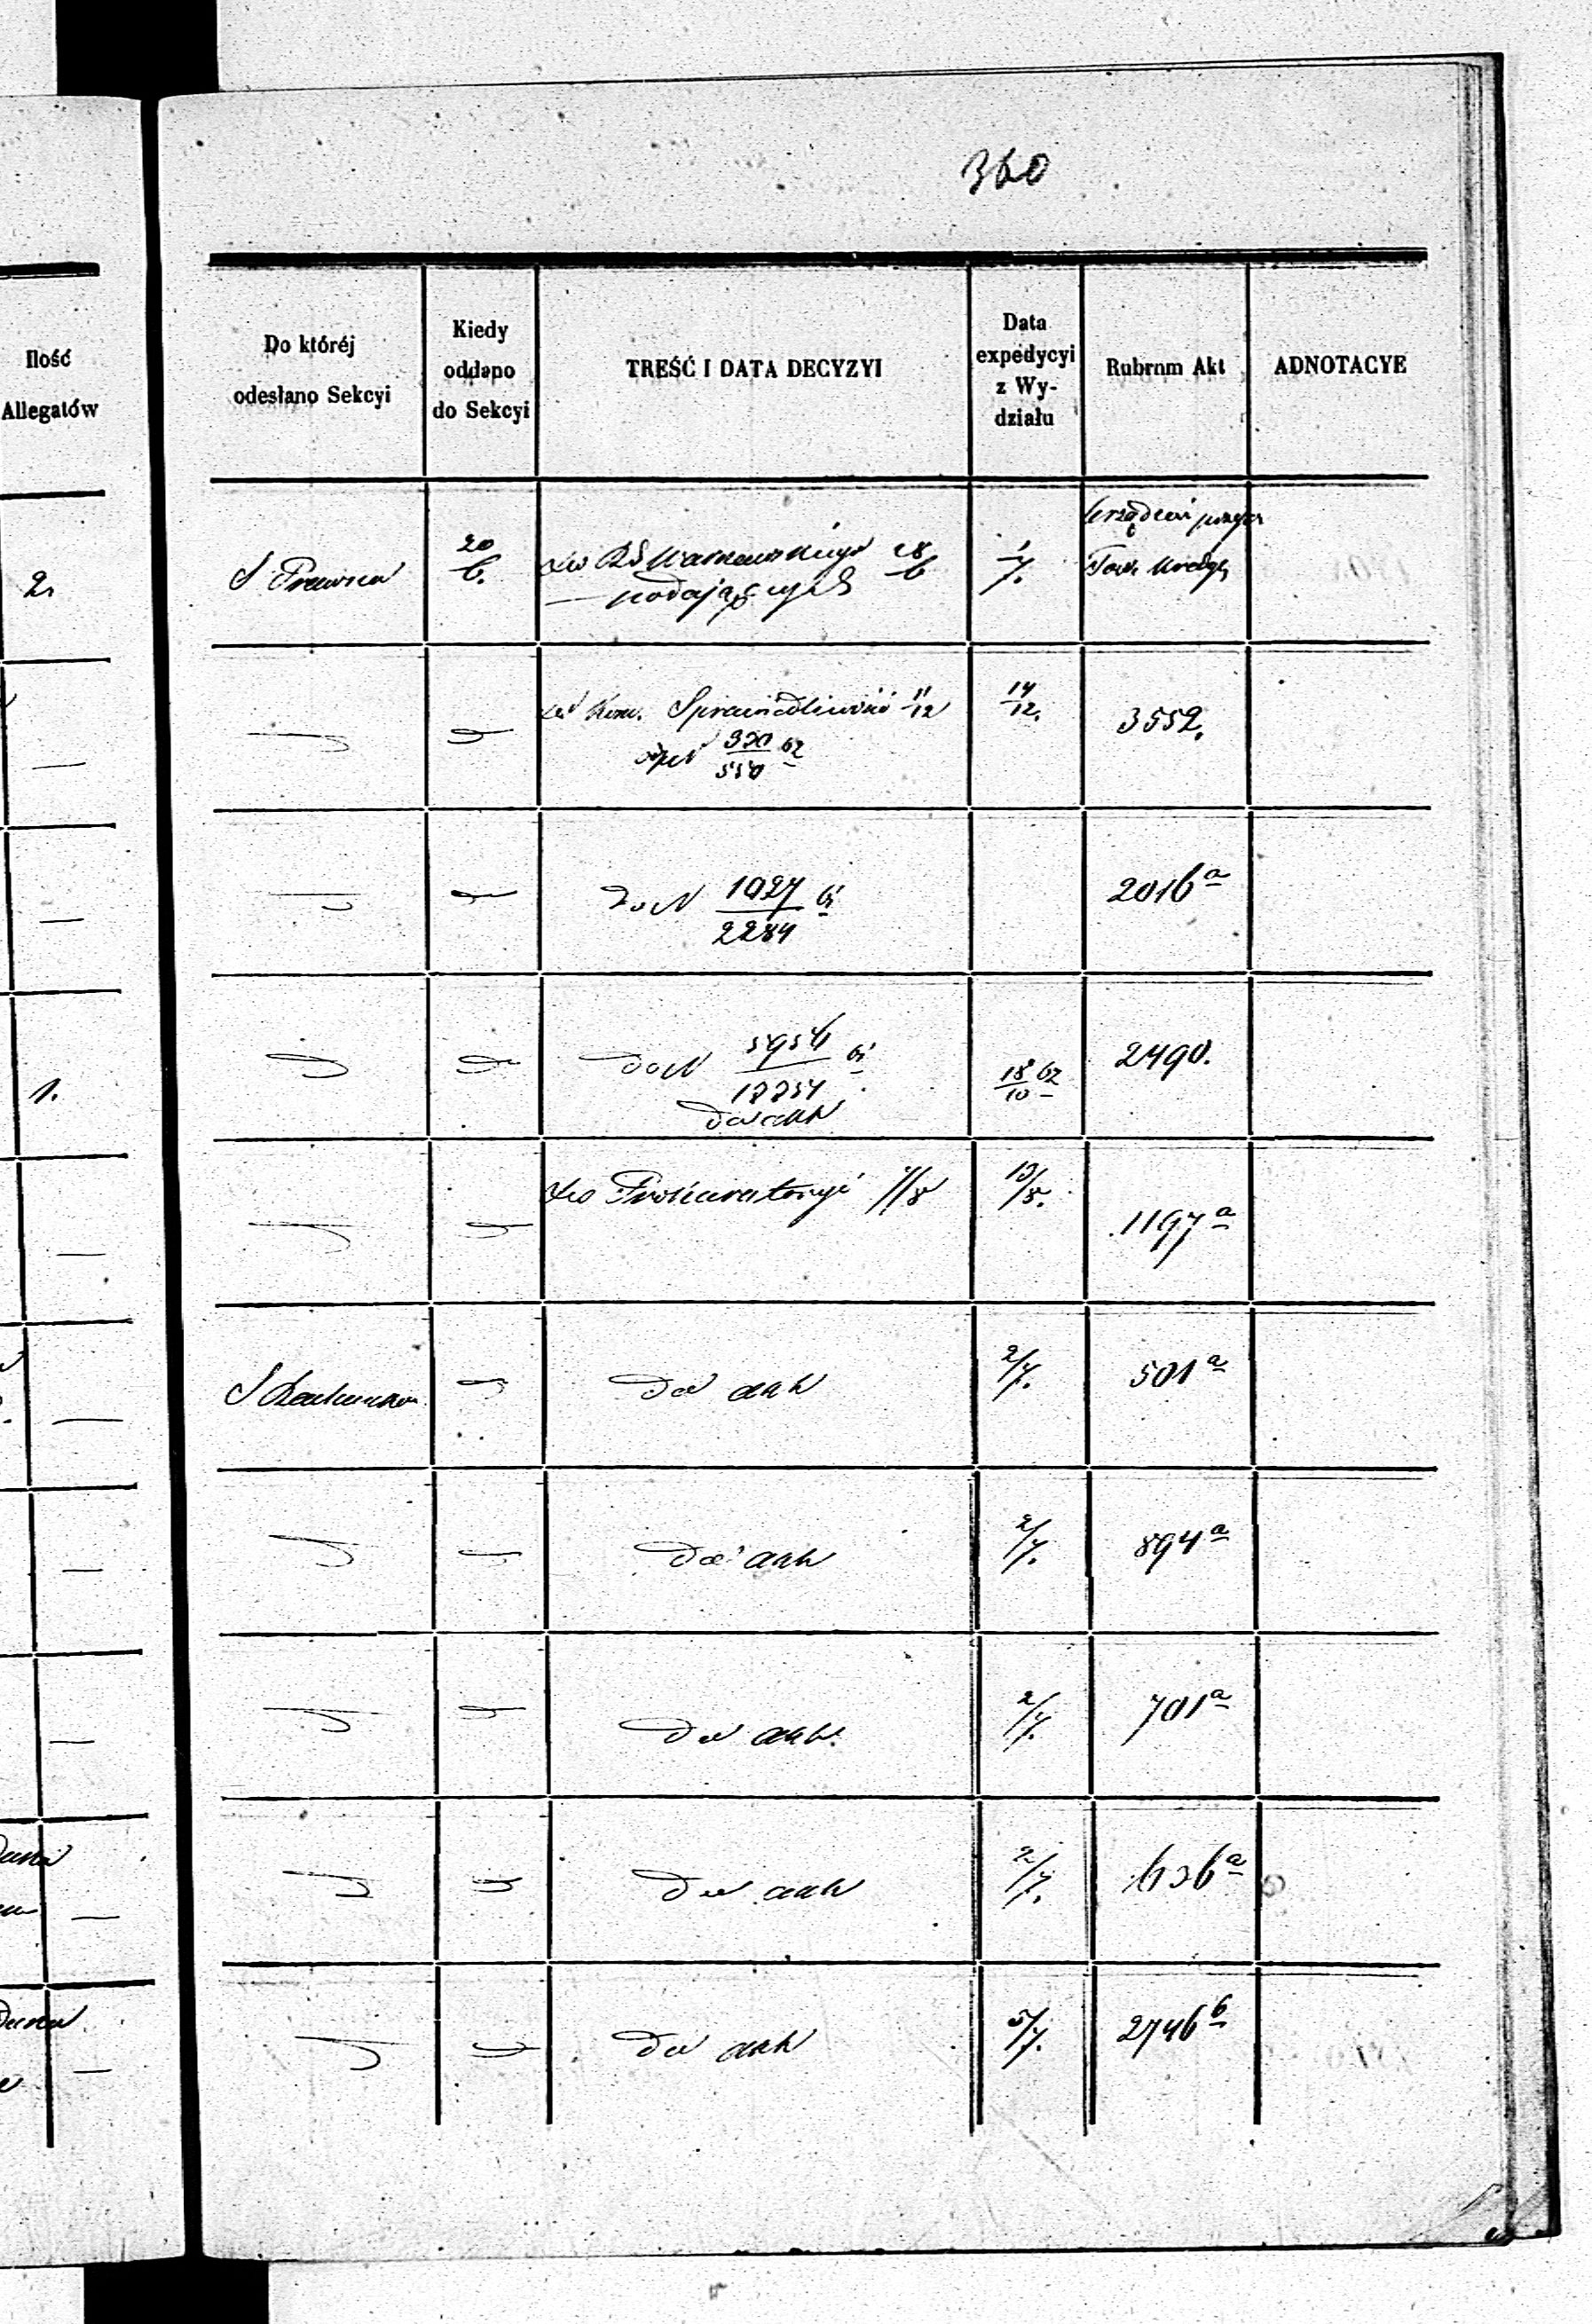 360
Ilość
Allegatów
Do któréj
odesłano Sekcyi
Kiedy
oddano
do Sekcyi
TREŚĆ I DATA DECYZYI
Data
expedycyi
z Wy-
działu
Rubrum Akt
ADNOTACYE
2
S Prawna
20/6.
do RG Warszawskiego 28/6
podających
1/7.
Tow. Kredy
do Kom. Sprawiedliwości 11/12
14/12.
3552.
do N 1027/2284
2016 a
1.
do N 5956/12254
do akt
18/10 62
2490.
do Prokuratoryi 7/8
13/8.
1197 a
do akt
2/7.
501 a
do akt
2/7.
894 a
do akt.
2/7.
701 a
do akt
2/7.
636 a
do akt
5/7.
2746 b